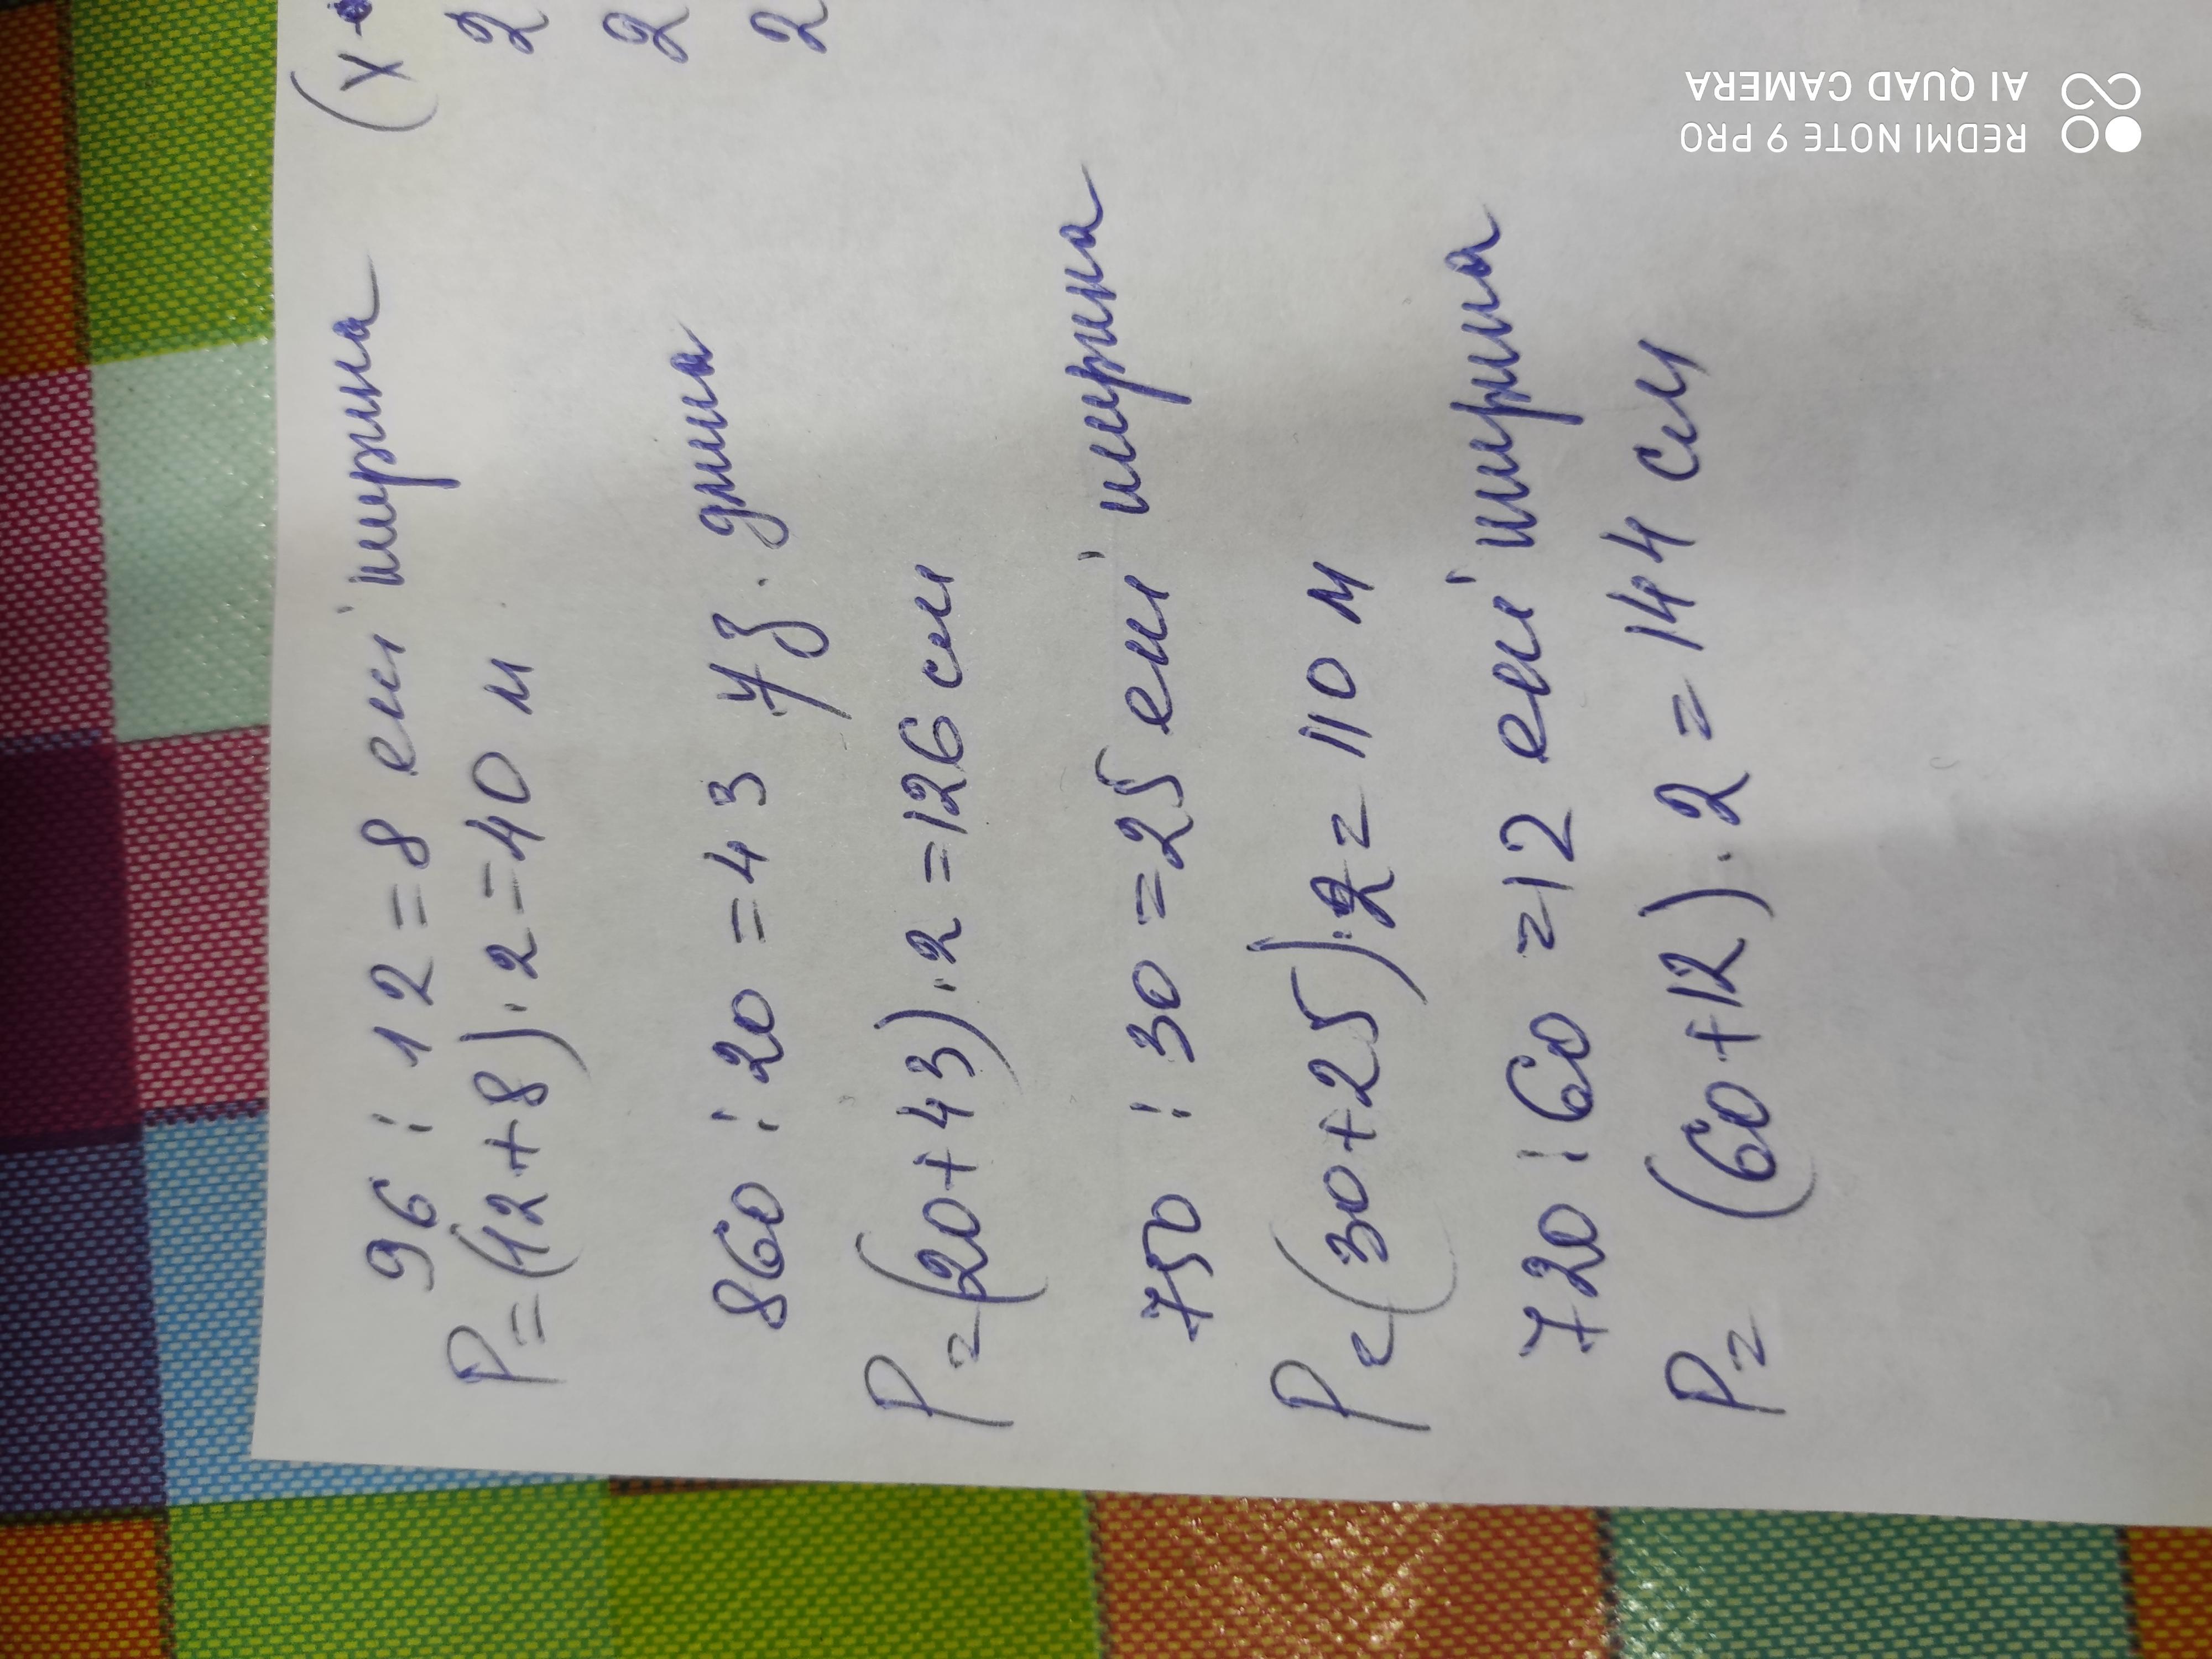 96 : 12 = 8 ені ширина
P = (12 + 8) · 2 = 40 м
860 : 20 = 43 ұз. длина
P = (20 + 43) · 2 = 126 см
750 : 30 = 25 ені ширина
P = (30 + 25) · 2 = 110 м
720 : 60 = 12 ені ширина
P = (60 + 12) · 2 = 144 см
(x -
2
2
2
REDMI NOTE 9 PRO
AI QUAD CAMERA